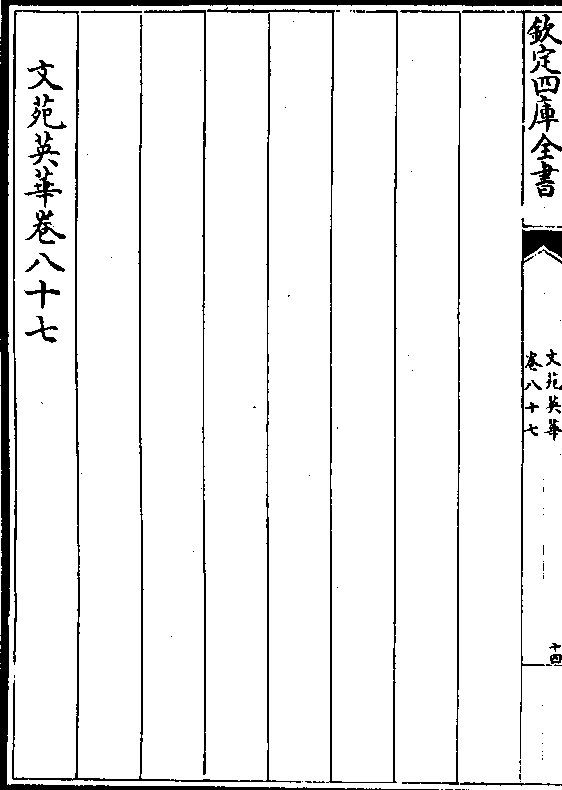 欽定四庫全書
文苑英華
卷八十七
十四
文苑英華卷八十七